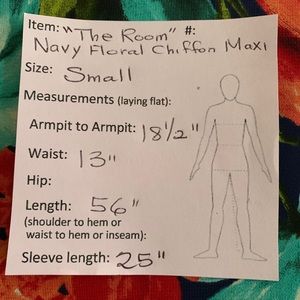 Item: "The Room" #:
Navy Floral Chiffon Maxi
Size: Small
Measurements (laying flat):
Armpit to Armpit: 18 1/2"
Waist: 13"
Hip:
Length: 56"
(shoulder to hem or
waist to hem or inseam):
Sleeve length: 25"